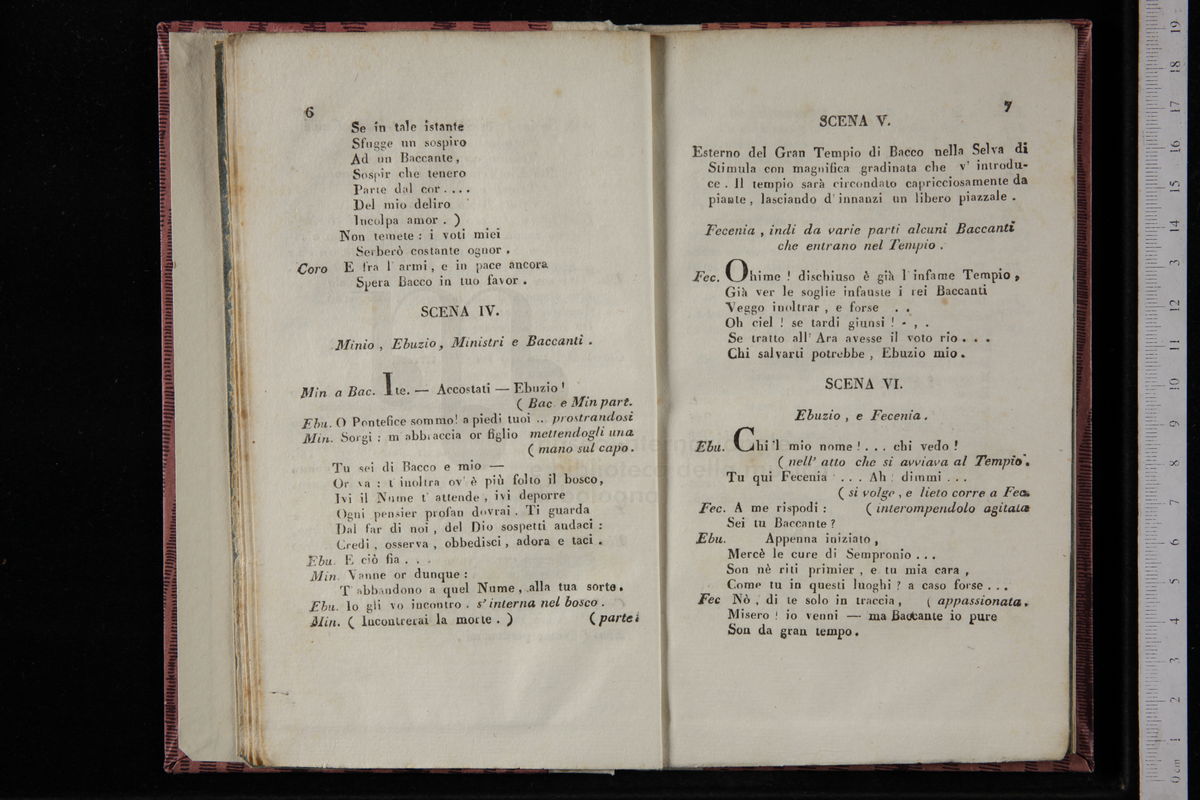 6
Se in tale istante
Sfugge un sospiro
Ad un Baccante,
Sospir che tenero
Parte dal cor....
Del mio deliro
Incolpa amor. )
Non temete: i voti miei
Serberò costante ognor.
Coro E fra l'armi, e in pace ancora
Spera Bacco in tuo favor.
SCENA IV.
Minio, Ebuzio, Ministri e Baccanti.
Min a Bac. Ite. — Accostati — Ebuzio!
( Bac e Min part.
Ebu. O Pontefice sommo! a piedi tuoi ... prostrandosi
Min. Sorgi: m abbraccia or figlio mettendogli una
( mano sul capo.
Tu sei di Bacco e mio —
Or va: t'inoltra ov'è più folto il bosco,
Ivi il Nume t'attende, ivi deporre
Ogni pensier profan dovrai. Ti guarda
Dal far di noi, del Dio sospetti audaci:
Credi, osserva, obbedisci, adora e taci.
Ebu. E ciò fia...
Min. Vanne or dunque:
T'abbandono a quel Nume, alla tua sorte.
Ebu. Io gli vo incontro. s'interna nel bosco.
Min. ( Incontrerai la morte. ) ( parte:
7
SCENA V.
Esterno del Gran Tempio di Bacco nella Selva di
Stimula con magnifica gradinata che v' introdu-
ce. Il tempio sarà circondato capricciosamente da
piante, lasciando d'innanzi un libero piazzale.
Fecenia, indi da varie parti alcuni Baccanti
che entrano nel Tempio.
Fec. Ohime! dischiuso è già l'infame Tempio,
Già ver le soglie infauste i rei Baccanti
Veggo inoltrar, e forse . .
Oh ciel! se tardi giunsi! - , .
Se tratto all' Ara avesse il voto rio...
Chi salvarti potrebbe, Ebuzio mio.
SCENA VI.
Ebuzio, e Fecenia.
Ebu. Chi 'l mio nome!... chi vedo!
( nell' atto che si avviava al Tempio.
Tu qui Fecenia ... Ah! dimmi...
( si volge, e lieto corre a Fec.
Fec. A me rispodi: ( interompendolo agitata
Sei tu Baccante?
Ebu. Appenna iniziato,
Mercè le cure di Sempronio...
Son nè riti primier, e tu mia cara,
Come tu in questi luoghi? a caso forse...
Fec Nò, di te solo in traccia, ( appassionata.
Misero! io venni — ma Baccante io pure
Son da gran tempo.